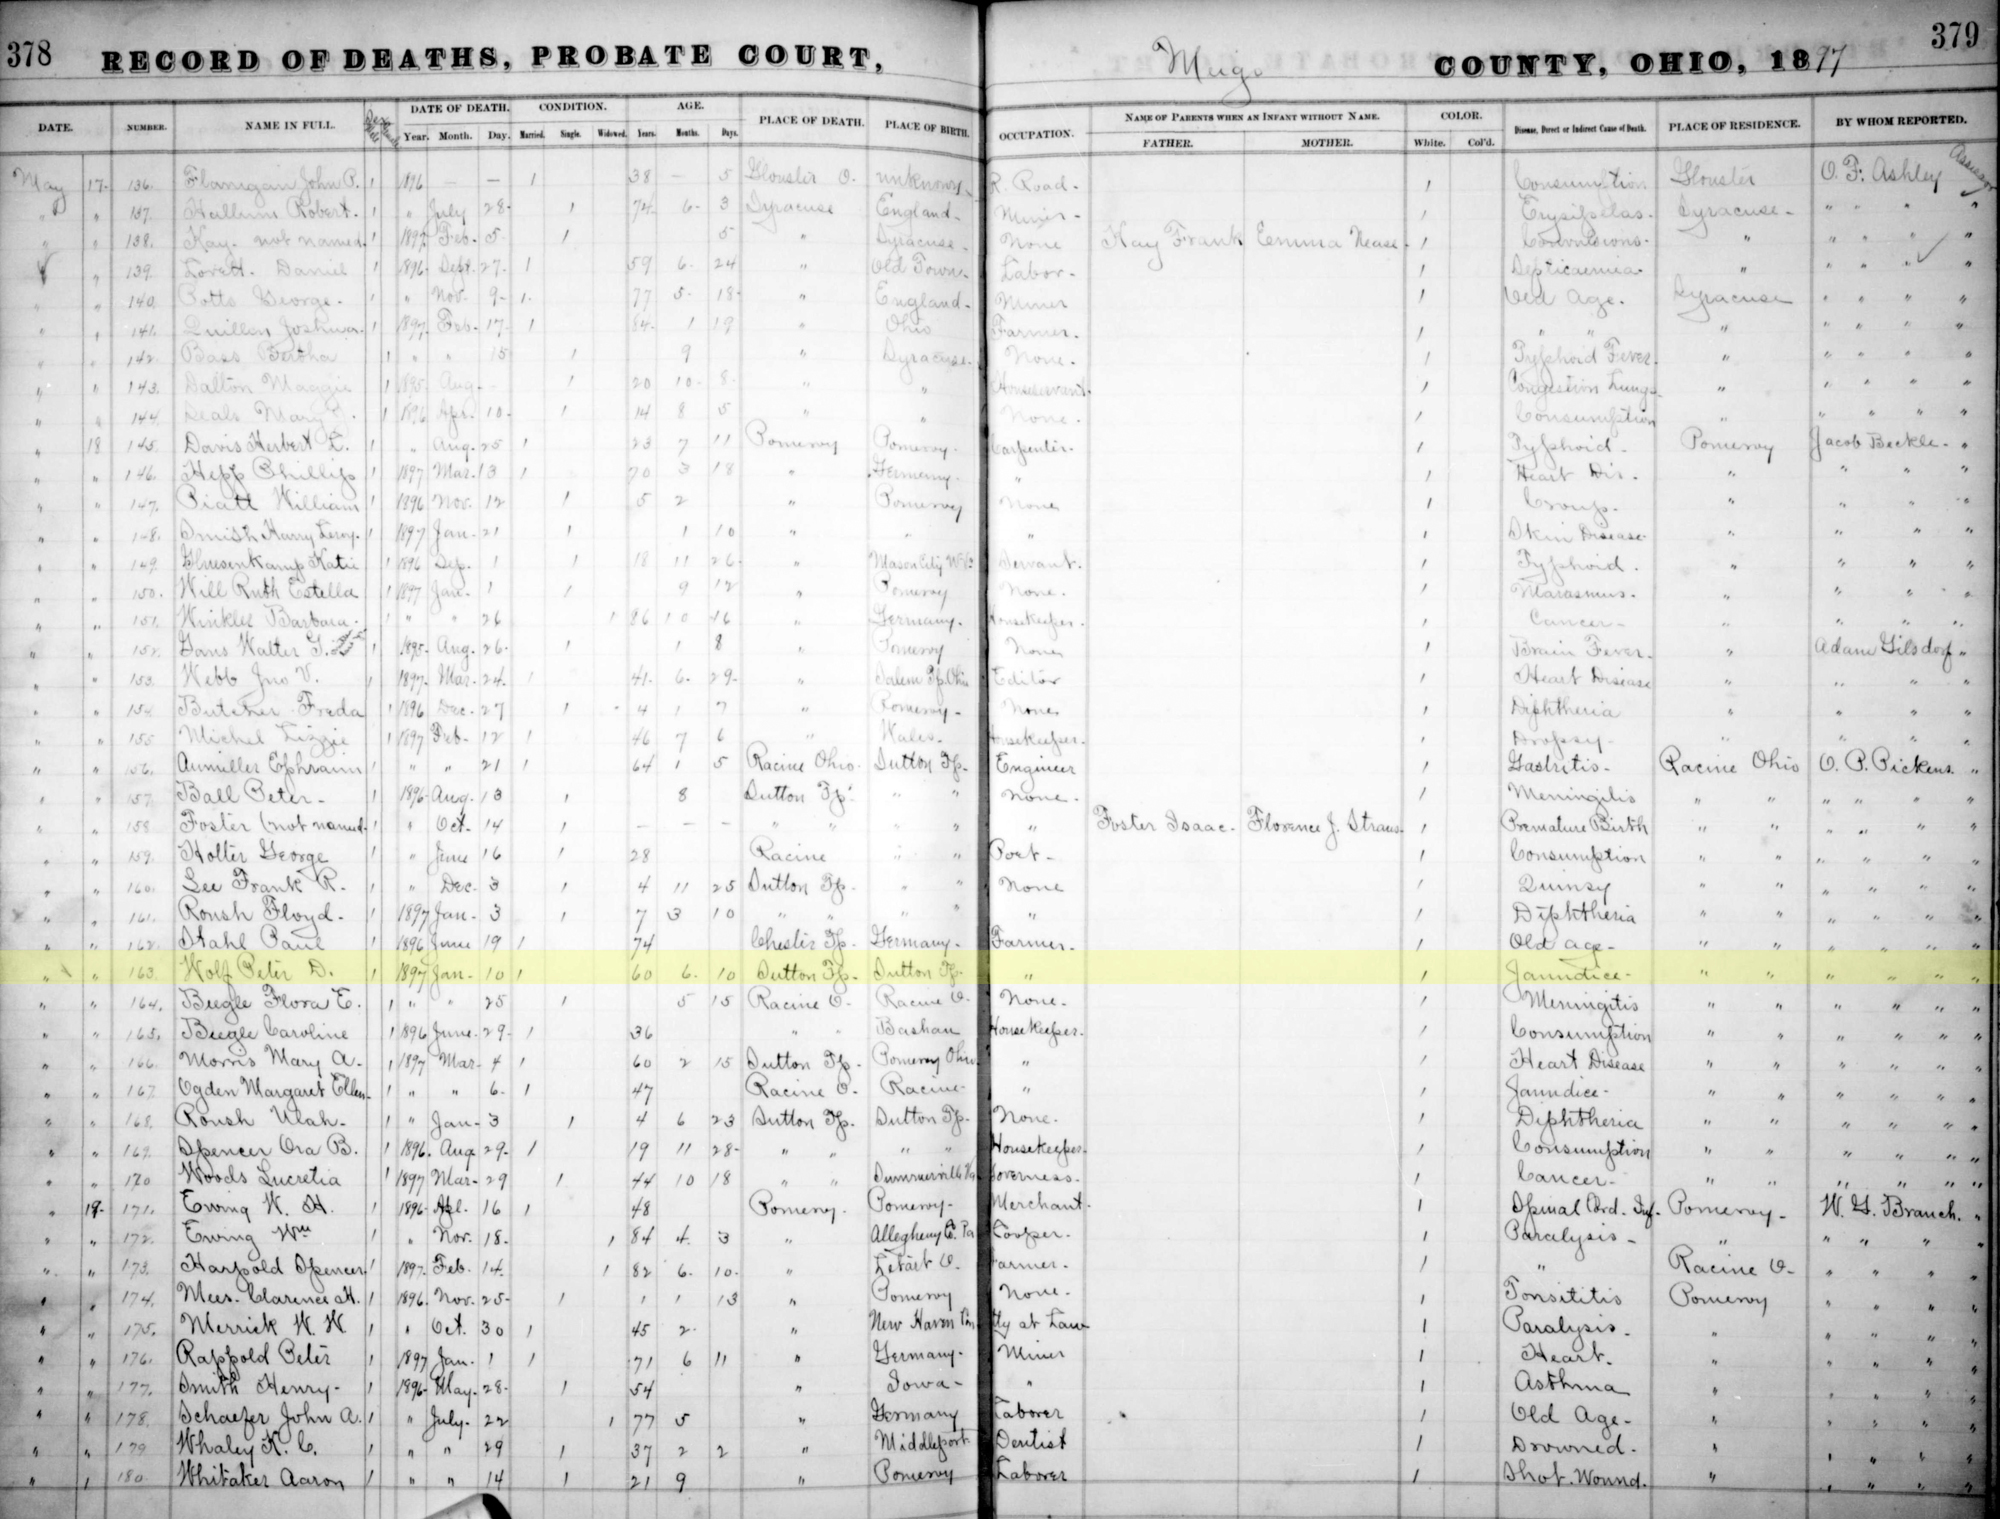 378 RECORD OF DEATHS, PROBATE COURT, Meigs COUNTY, OHIO, 1897 379
DATE. NUMBER. NAME IN FULL. DATE OF DEATH. CONDITION. AGE. PLACE OF DEATH. PLACE OF BIRTH. OCCUPATION. NAME OF PARENTS WHEN AN INFANT WITHOUT NAME. COLOR. Disease, Direct or Indirect Cause of Death. PLACE OF RESIDENCE. BY WHOM REPORTED.
Year. Month. Day. Married. Single. Widowed. Years. Months. Days. FATHER. MOTHER. White. Col'd.
May 17- 136. Flanigan John P. 1 1896 — — 1 38 — 5 Glouster O. unknown R. Road- 1 Consumption Glouster O. F. Ashley Assessor
" " 137. Hullum Robert. 1 " July 28- 1 74- 6- 3 Syracuse England- Miner- 1 Erysipelas- Syracuse- " " " "
" " 138. Kay- not named. 1 1897 Feb- 5- 1 5 " Syracuse- None Kay Frank Emma Nease- 1 Convulsions- " " " " "
" 139. Lovett- Daniel 1 1896- Sept. 27- 1 59 6- 24 " Old Town- Labor- 1 Septicaemia- " " " " "
" " 140. Potts George- 1 " Nov. 9- 1- 77 5- 18- " England- Miner 1 Old Age. Syracuse " " " "
" " 141. Quillen Joshua. 1 1897. Feb- 17- 1 84- 1 19 " Ohio Farmer- 1 " " " " " " "
" " 142. Bass Bertha 1 " " 15 1 9 " Syracuse- None- 1 Typhoid Fever. " " " " "
" " 143. Dalton Maggie 1 1895. Aug- - 1 20 10- 8- " " 1 Congestion Lungs- " " " " "
" " 144. Seals Mary 1 1896 Apr. 10- 1 14 8 5 " " None. 1 Consumption " " " " "
" 18 145. Davis Herbert L. 1 " Aug- 25 1 23 7 11 Pomeroy Pomeroy- Carpenter- 1 Typhoid- Pomeroy Jacob Beckle- "
" " 146. Hepp Phillip 1 1897 Mar- 13 1 70 3 18 " Germany- " 1 Heart Dis- " " " "
" " 147. Piatt William 1 1896 Nov. 12 1 5 2 " Pomeroy None 1 Croup- " " " "
" " 148. Smith Harry Leroy- 1 1897 Jan- 21 1 1 10 " " " 1 Skin Disease " " " "
" " 149. Gluesenkamp Katie 1 1896 Sep. 1 1 18 11 26- " Mason City W-Va Servant. 1 Typhoid. " " " "
" " 150. Will Ruth Estella 1 1897 Jan- 1 1 9 12 " Pomeroy None. 1 Marasmus- " " " "
" " 151. Winkler Barbara- 1 " " 26 1 86 10 16 " Germany- Housekeeper- 1 Cancer- " " " "
" " 152. Gans Walter G. 1 1895- Aug. 26- 1 1 8 " Pomeroy None 1 Brain Fever. " Adam Gilsdorf "
" " 153. Webb Jno V. 1 1897- Mar- 24- 1 41- 6- 29- " Salem Tp. Ohio Editor 1 Heart Disease " " " "
" " 154 Butcher Freda 1 1896 Dec- 27 1 4 1 7 " Pomeroy- None 1 Diphtheria " " " "
" " 155 Michel Lizzie 1 1897 Feb- 12 1 46 7 6 " Wales- Housekeeper- 1 Dropsy- " " " "
" " 156. Aumiller Ephraim 1 " " 21 1 64 1 5 Racine Ohio. Sutton Tp- Engineer 1 Gastritis- Racine Ohio O. P. Pickens. "
" " 157. Ball Peter- 1 1896- Aug- 13 1 8 Sutton Tp. " " None- 1 Meningitis " " " " " "
" " 158 Foster (not named- 1 " Oct- 14 1 — — — " " " " " Foster Isaac- Florence J. Straus- 1 Premature Birth " " " " " "
" " 159. Holter George 1 " June 16 1 28 Racine " " Poet- 1 Consumption " " " " " "
" " 160. Lee Frank R. 1 " Dec- 3 1 4 11 25 Sutton Tp. " " None 1 Quinsy " " " " " "
" " 161. Roush Floyd- 1 1897 Jan- 3 1 7 3 10 " " " " " 1 Diphtheria " " " " " "
" " 162. Stahl Paul 1 1896 June 19 1 74 Chester Tp. Germany- Farmer- 1 Old age- " " " " " "
" " 163. Wolf Peter D. 1 1897 Jan- 10 1 60 6- 10 Sutton Tp- Sutton Tp- " 1 Jaundice- " " " " " "
" " 164. Beegle Flora E. 1 " " 25 1 5 15 Racine O- Racine O- None- 1 Meningitis " " " " " "
" " 165. Beegle Caroline 1 1896 June- 29- 1 36 " " Bashan Housekeeper- 1 Consumption " " " " " "
" " 166. Morris Mary A- 1 1897 Mar- 4 1 60 2 15 Sutton Tp- Pomeroy Ohio. " 1 Heart Disease " " " " " "
" " 167. Ogden Margaret Ellen- 1 " " 6- 1 47 Racine O- Racine- " 1 Jaundice- " " " " " "
" " 168. Roush Ulah- 1 " Jan- 3 1 4 6 23 Sutton Tp. Sutton Tp- None. 1 Diphtheria " " " " " "
" " 169. Spencer Ora B. 1 1896. Aug 29- 1 19 11 28- " " " " Housekeeper- 1 Consumption " " " " " "
" " 170 Woods Lucretia 1 1897 Mar- 29 1 44 10 18 " " Governess- 1 Cancer- " " " " " "
" 19- 171. Ewing W. H. 1 1896- Apl- 16 1 48 Pomeroy. Pomeroy- Merchant. 1 Spinal Cord- Inf- Pomeroy- W. G. Branch. "
" " 172. Ewing Wm 1 " Nov. 18- 1 84 4- 3 " Allegheny Co. Pa Cooper- 1 Paralysis- " " " " "
" " 173. Harpold Spencer. 1 1897- Feb- 14- 1 82 6- 10- " Letart O- Farmer- 1 " Racine O- " " " "
" " 174. Mees- Clarence H. 1 1896. Nov. 25- 1 1 1 13 " Pomeroy None- 1 Tonsititis Pomeroy " " " "
" " 175. Merrick W. W 1 " Oct. 30 1 45 2- " New Haven Con Atty at Law 1 Paralysis- " " " " "
" " 176. Rappold Peter 1 1897 Jan- 1 1 71 6 11 " Germany- Miner 1 Heart- " " " " "
" " 177. Smith Henry- 1 1896- May- 28- 1 54 " Iowa- " 1 Asthma " " " " "
" " 178. Schaefer John A. 1 " July- 22 1 77 5 " Germany Laborer 1 Old Age- " " " " "
" " 179 Whaley K. C. 1 " " 29 1 37 2 2 " Middleport- Dentist 1 Drowned- " " " " "
" " 180- Whitaker Aaron 1 " " 14 1 21 9 " Pomeroy Laborer 1 Shot. Wound. " " " " "